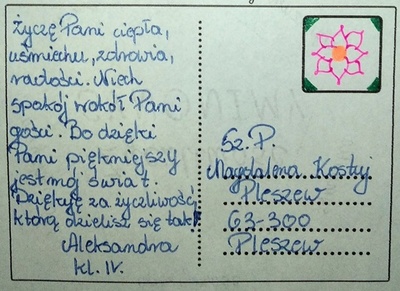 Życzę Pani ciepła,
uśmiechu, zdrowia,
radości. Niech
spokój wokół Pani
gości. Bo dzięki
Pani piękniejszy
jest mój świat.
Dziękuję za życzliwość,
którą dzielisz się tak!
Aleksandra
kl. IV.
Sz. P.
Magdalena Kostuj
Pleszew
63-300
Pleszew